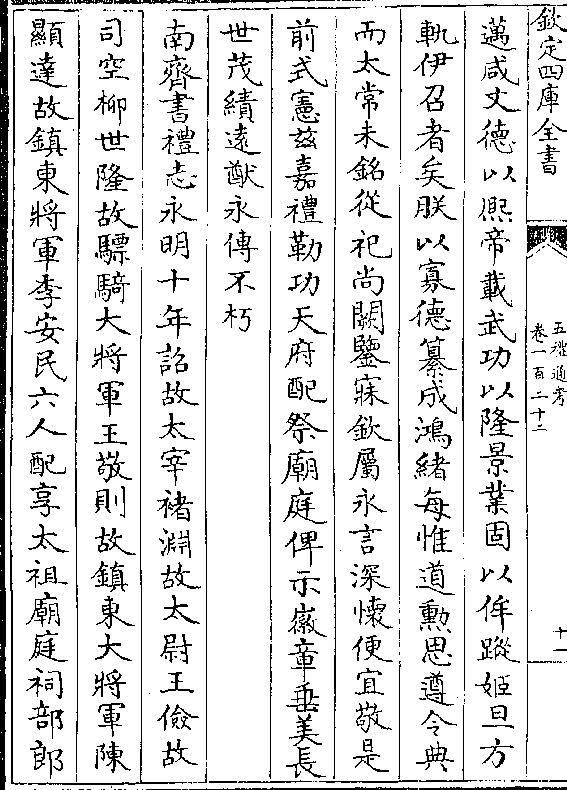 欽定四庫全書
五禮通考
卷一百二十二
十一
邁咸丈德以熈帝載武功以隆景業固以侔蹤姬旦方
軌伊召者矣朕以寡德纂成鴻緒每惟道勲思遵令典
而太常未銘從祀尚闕鑒寐欽屬永言深懷便宜敬是
前式憲兹嘉禮勒功天府配祭廟庭俾示徽章垂美長
世茂績遠猷永傳不朽
南齊書禮志永明十年詔故太宰褚淵故太尉王儉故
司空柳世隆故驃騎大將軍王敬則故鎮東大將軍陳
顯達故鎮東將軍李安民六人配享太祖廟庭祠部郎